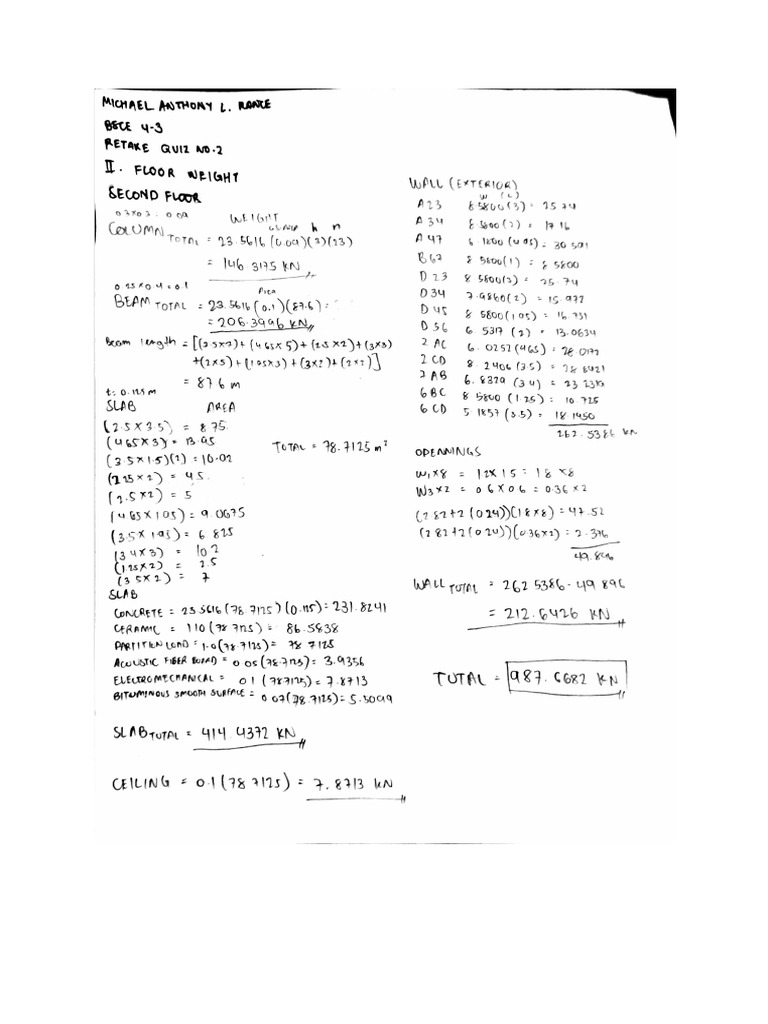 MICHAEL ANTHONY L. RANCE
BSCE 4-3
RETAKE QUIZ NO.2
II. FLOOR WEIGHT
SECOND FLOOR
0.3x0.3 = 0.09 WEIGHT
COLUMN TOTAL = 23.5616(0.09)(3)(23)
= 146.3175 KN
0.25x0.4=0.1 Area
BEAM TOTAL = 23.5616(0.1)(87.6)=
= 206.3996 KN
Beam length = [(2.5x2)+(4.65x5)+(2.5x2)+(3x3)
+(2x5)+(1.95x3)+(3x2)+(2x2)]
= 87.6 m
t: 0.125m
SLAB AREA
(2.5x3.5) = 8.75
(4.65x3) = 13.95
(3.5x1.5)(2) = 10.02
(2.25x2) = 4.5
(2.5x2) = 5
(4.65x1.95) = 9.0675
(3.5x1.95) = 6.825
(3.4x3) = 10.2
(1.25x2) = 2.5
(3.5x2) = 7
TOTAL = 78.7125 m²
SLAB
CONCRETE = 23.5616(78.7125)(0.125)=231.8241
CERAMIC = 1.10(78.7125) = 86.5838
PARTITION LOAD = 1.0(78.7125) = 78.7125
ACOUSTIC FIBER BOARD = 0.05(78.7125) = 3.9356
ELECTROMECHANICAL = 0.1(78.7125) = 7.8713
BITUMINOUS SMOOTH SURFACE = 0.07(78.7125) = 5.5099
SLAB TOTAL = 414.4372 KN
CEILING = 0.1(78.7125) = 7.8713 KN
WALL (EXTERIOR)
W (L)
A23 8.5800(3) = 25.74
A34 8.5800(2) = 17.16
A47 6.1800(4.95) = 30.591
B62 8.5800(1) = 8.5800
D23 8.5800(3) = 25.74
D34 7.9860(2) = 15.972
D45 8.5800(1.95) = 16.731
D56 6.5317(2) = 13.0634
2AC 6.0252(4.65) = 28.0172
2CD 8.2406(3.5) = 28.8421
2AB 6.8329(3.4) = 23.2319
6BC 8.5800(1.25) = 10.725
6CD 5.1857(3.5) = 18.1450
262.5386 KN
OPENNINGS
W1x8 = 1.2x1.5 = 1.8x8
W3x2 = 0.6x0.6 = 0.36x2
(2.82+2(0.24))(1.8x8) = 47.52
(2.82+2(0.24))(0.36x2) = 2.376
49.896
WALL TOTAL = 262.5386-49.896
= 212.6426 KN
TOTAL = 987.6682 KN